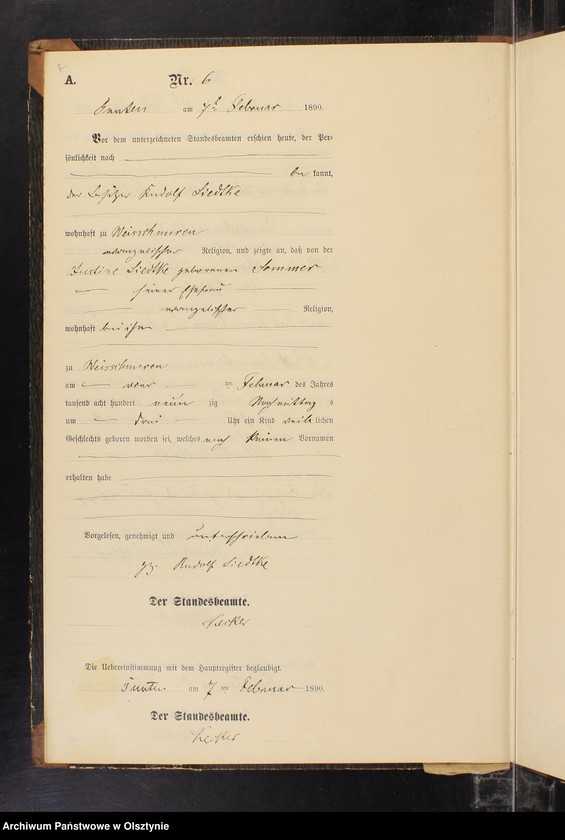 A. Nr. 6
am 7ten Februar 1890.
Vor dem unterzeichneten Standesbeamten erschien heute, der Per-
sönlichkeit nach
be kannt,
der Besitzer Rudolf Liedtke
wohnhaft zu Weisschnuren
evangelischer Religion, und zeigte an, daß von der
Justine Liedtke geborenen Sommer
seiner Ehefrau
evangelischer Religion,
wohnhaft bei ihm
zu Weisschnuren
am vier ten Februar des Jahres
tausend acht hundert neun zig Nachmittag s
um drei Uhr ein Kind weib lichen
Geschlechts geboren worden sei, welches noch keinen Vornamen
erhalten habe
Vorgelesen, genehmigt und unterschrieben
gez. Rudolf Liedtke
Der Standesbeamte.
Die Uebereinstimmung mit dem Hauptregister beglaubigt.
am 7 ten Februar 1890.
Der Standesbeamte.
Archiwum Państwowe w Olsztynie